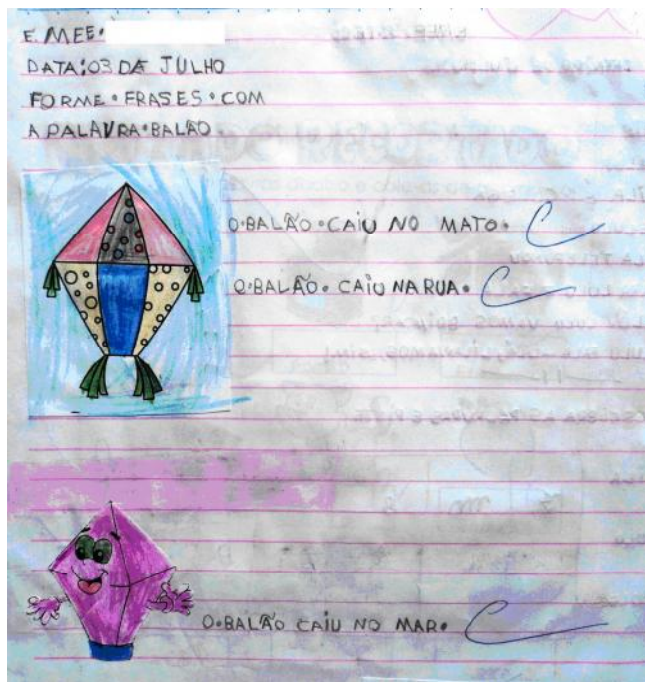 E.MEE.
DATA:03 DE JULHO
FORME•FRASES•COM
A PALAVRA•BALÃO•
O•BALÃO•CAIU NO MATO•
O•BALÃO• CAIU NA RUA•
O•BALÃO CAIU NO MAR•